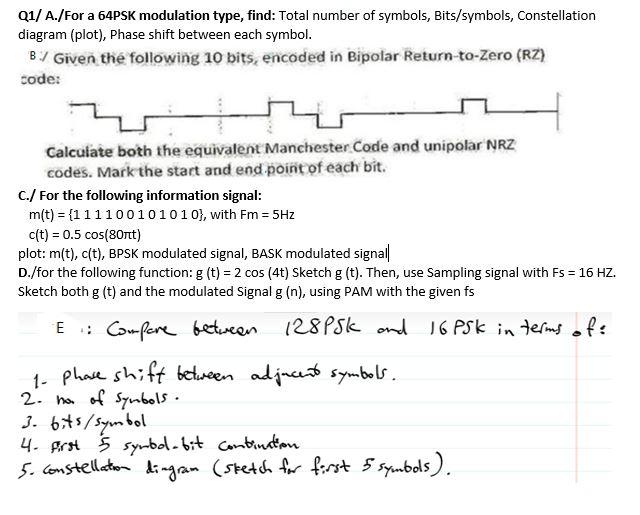 Q1/ A./For a 64PSK modulation type, find: Total number of symbols, Bits/symbols, Constellation
diagram (plot), Phase shift between each symbol.
B:/ Given the following 10 bits, encoded in Bipolar Return-to-Zero (RZ)
code:
Calculate both the equivalent Manchester Code and unipolar NRZ
codes. Mark the start and end point of each bit.
C./ For the following information signal:
m(t) = {1 1 1 1 0 0 1 0 1 0 1 0}, with Fm = 5Hz
c(t) = 0.5 cos(80πt)
plot: m(t), c(t), BPSK modulated signal, BASK modulated signal
D./for the following function: g (t) = 2 cos (4t) Sketch g (t). Then, use Sampling signal with Fs = 16 HZ.
Sketch both g (t) and the modulated Signal g (n), using PAM with the given fs
E : Compare between 128PSK and 16PSK in terms of:
1- phase shift between adjacent symbols.
2- no of symbols.
3- bits/symbol
4- first 5 symbol-bit combination
5- constellation diagram (sketch for first 5 symbols).